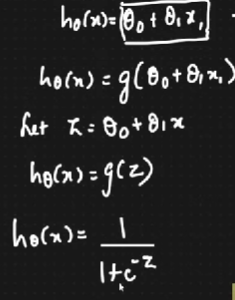 hθ(x) = θ0 + θ1 x1
hθ(x) = g(θ0 + θ1 x1)
Let z = θ0 + θ1 x
hθ(x) = g(z)
hθ(x) = 1 / 1+e^-z